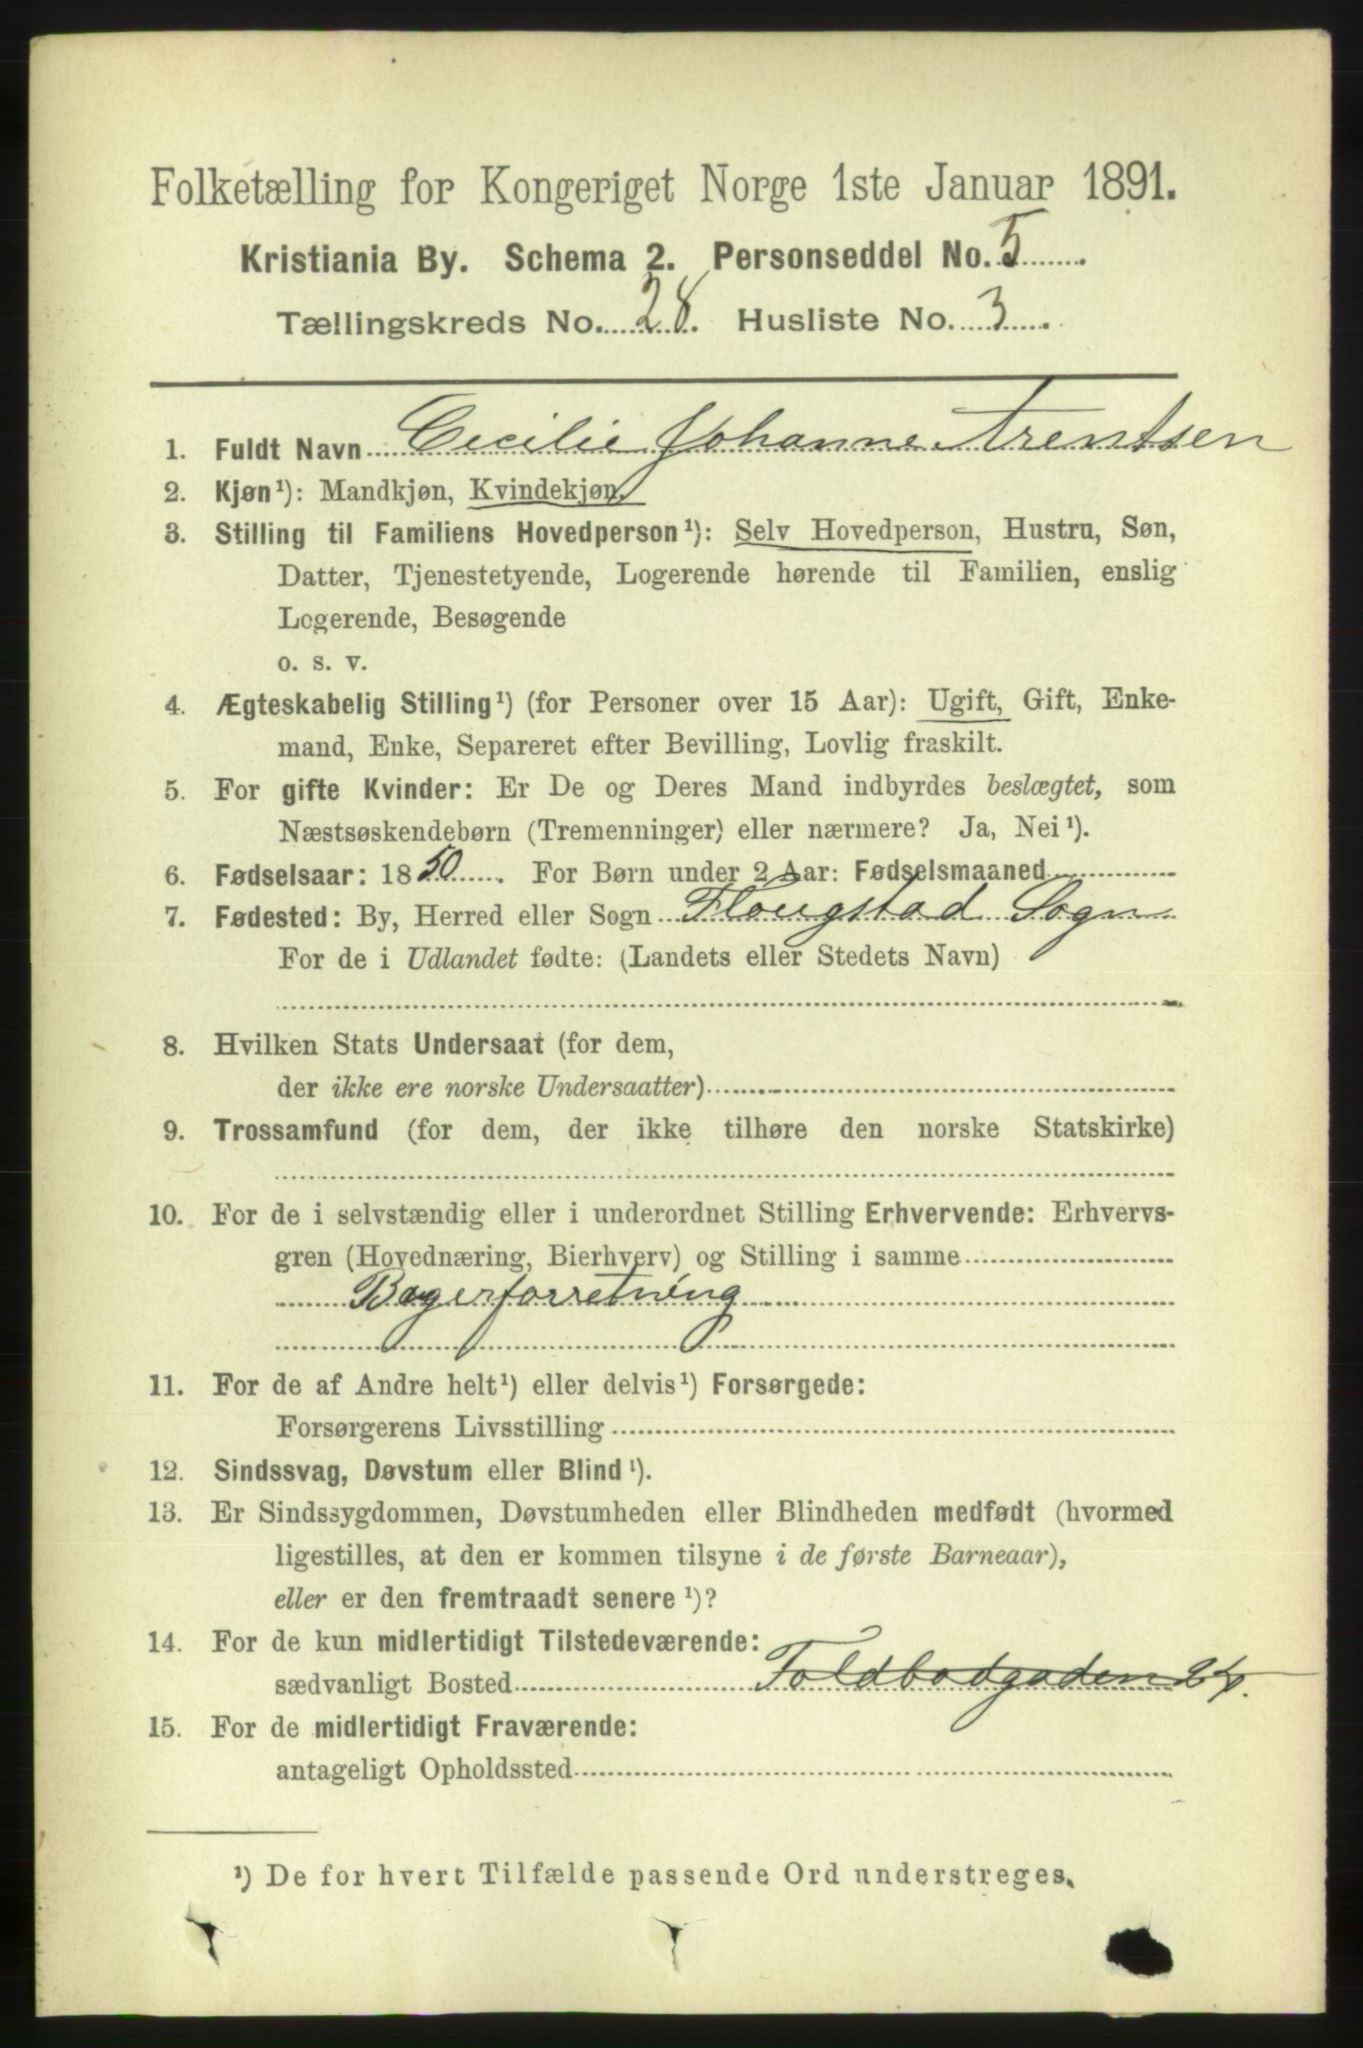 Folketælling for Kongeriget Norge 1ste Januar 1891.
Kristiania By. Schema 2. Personseddel No. 5
Tællingskreds No. 28. Husliste No. 3.
1. Fuldt Navn Cecilie Johanne Arentsen
2. Kjøn¹): Mandkjøn, Kvindekjøn.
3. Stilling til Familiens Hovedperson¹): Selv Hovedperson, Hustru, Søn,
Datter, Tjenestetyende, Logerende hørende til Familien, enslig
Logerende, Besøgende
o. s. v.
4. Ægteskabelig Stilling¹) (for Personer over 15 Aar): Ugift, Gift, Enke-
mand, Enke, Separeret efter Bevilling, Lovlig fraskilt.
5. For gifte Kvinder: Er De og Deres Mand indbyrdes beslægtet, som
Næstsøskendebørn (Tremenninger) eller nærmere? Ja, Nei¹).
6. Fødselsaar: 1850. For Børn under 2 Aar: Fødselsmaaned
7. Fødested: By, Herred eller Sogn Flougstad Sogn
For de i Udlandet fødte: (Landets eller Stedets Navn)
8. Hvilken Stats Undersaat (for dem,
der ikke ere norske Undersaatter)
9. Trossamfund (for dem, der ikke tilhøre den norske Statskirke)
10. For de i selvstændig eller i underordnet Stilling Erhvervende: Erhvervs-
gren (Hovednæring, Bierhverv) og Stilling i samme
Bagerforretning
11. For de af Andre helt¹) eller delvis¹) Forsørgede:
Forsørgerens Livsstilling
12. Sindssvag, Døvstum eller Blind¹).
13. Er Sindssygdommen, Døvstumheden eller Blindheden medfødt (hvormed
ligestilles, at den er kommen tilsyne i de første Barneaar),
eller er den fremtraadt senere¹)?
14. For de kun midlertidigt Tilstedeværende:
sædvanligt Bosted Toldbodgaden 24.
15. For de midlertidigt Fraværende:
antageligt Opholdssted
¹) De for hvert Tilfælde passende Ord understreges.